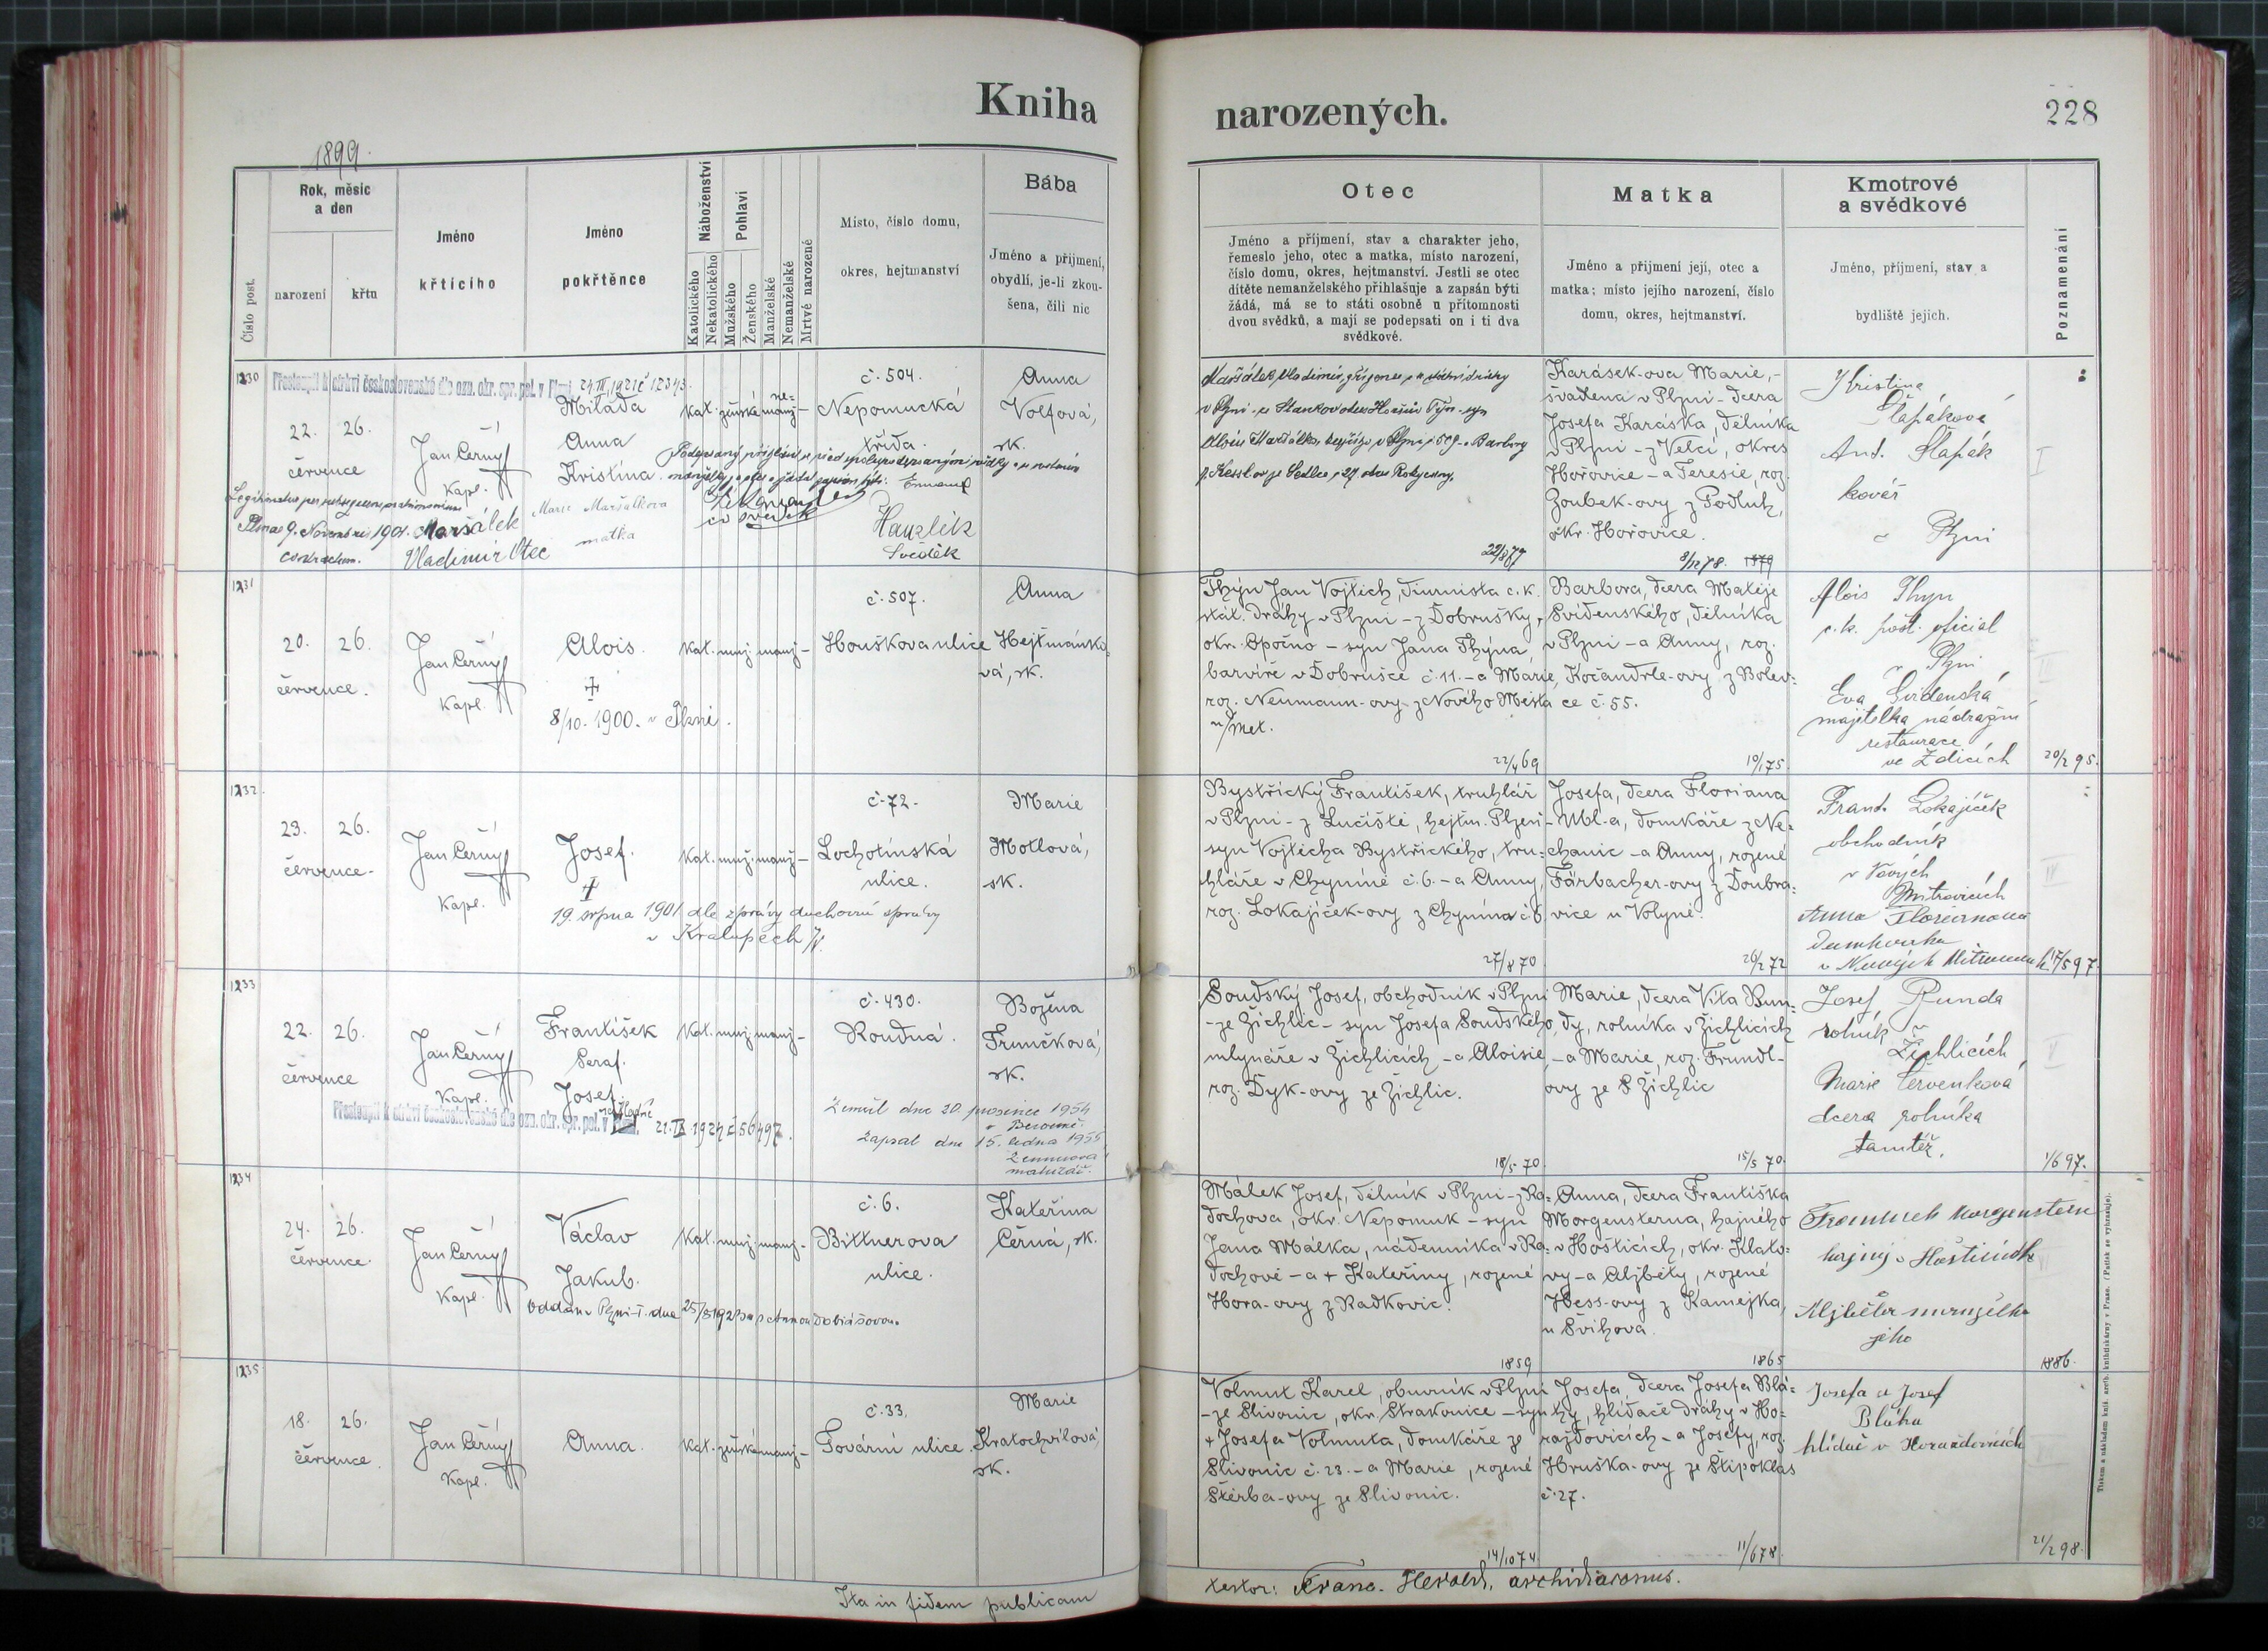 Kniha
narozených.
228
1899.
Číslo post.
Rok, měsíc
a den
narození
křtu
Jméno
křtícího
Jméno
pokřtěnce
Náboženství
Katolického
Nekatolického
Pohlaví
Mužského
Ženského
Manželské
Nemanželské
Mrtvé narozené
Místo, číslo domu,
okres, hejtmanství
Bába
Jméno a příjmení,
obydlí, je-li zkou-
šena, čili nic
Otec
Jméno a příjmení, stav a charakter jeho,
řemeslo jeho, otec a matka, místo narození,
číslo domu, okres, hejtmanství. Jestli se otec
dítěte nemanželského přihlašuje a zapsán býti
žádá, má se to státi osobně u přítomnosti
dvou svědků, a mají se podepsati on i ti dva
svědkové.
Matka
Jméno a příjmení její, otec a
matka; místo jejího narození, číslo
domu, okres, hejtmanství.
Kmotrové
a svědkové
Jméno, příjmení, stav a
bydliště jejich.
Poznamenání
1230
Přestoupil k církvi československé dle ozn. okr. spr. pol. v Plzni 24.III.1921 č 12343.
22. 26.
července
Jan Černý
Kapl.
Milada
Anna
Kristina.
kat. ženské ne-
manž-
č. 504.
Nepomucká
třída.
Anna
Volfová,
zk.
Legitimatus per subsequens matrimonium
Plzna 9. Novembris 1901. Maršálek
contractum. Vladimír Otec
Marie Maršálkova
matka
Hanzlík
Svědek
v Plzni - ze Stankova okr. Horšův Týn - syn
Karásek-ova Marie, -
švadlena v Plzni - dcera
Josefa Karáska, dělníka
v Plzni - z Velcí, okres
Hořovice - a Teresie, roz.
Zoubek-ovy z Podluh,
okr. Hořovice.
Kristina
Šlapáková
Ant. Šlapák
kovář
v Plzni
22/8 77
8/12 78. 1879
1231
20. 26.
července.
Jan Černý
Kapl.
Alois.
+
8/10. 1900. v Plzni.
kat. muž. manž-
č. 507.
Houškova ulice
Anna
Hejtmánko-
vá, zk.
Thýn Jan Vojtěch, diurnista c. k.
stát. dráhy v Plzni - z Dobrušky,
okr. Opočno - syn Jana Thýna,
barvíře v Dobrušce č. 11. - a Marie,
roz. Neumann-ovy z Nového Města
n/Met.
22/4 69
Barbora, dcera Matěje
Svidenského, dělníka
v Plzni - a Anny, roz.
Kočandrle-ovy z Bolev-
ce č. 55.
10/1 75.
Alois Thyn
c. k. pošt. oficial
v Plzni
Eva Svidenská
majitelka nádražní
restaurace
ve Zdicích
20/2 95.
1232
23. 26.
července.
Jan Černý
Kapl.
Josef.
+
19. srpna 1901 dle zprávy duchovní správy
v Kralupech /V.
kat. muž. manž-
č. 72.
Lochotínská
ulice.
Marie
Motlová,
zk.
Bystřický František, truhlář
v Plzni - z Lučiště, hejtm. Plzeň -
syn Vojtěcha Bystřického, tru-
hláře v Chyníně č. 6. - a Anny,
roz. Lokajíček-ovy z Chynína č 6.
27/8 70
Josefa, dcera Floriana
Ubl-a, domkáře z Ne-
chanic - a Anny, rozené
Färbacher-ovy z Doubra-
vice u Volyně.
26/2 72
Frant. Lokajíček
obchodník
v Nových
Mitrovicích
Anna Florianova
17/5 97.
1233
22. 26.
července
Jan Černý
Kapl.
František
Seraf.
Josef.
kat. muž. manž-
č. 430.
Roudná.
Božena
Trunčková,
zk.
Přestoupil k církvi československé dle ozn. okr. spr. pol. v 21.IX 1924 č 56497.
Zemřel dne 20. prosince 1954
v Berouně.
Zapsal dne 15. ledna 1955
matrikář.
Soudský Josef, obchodník v Plzni
- ze Žichlic - syn Josefa Soudského,
mlynáře v Žichlicích - a Aloisie,
roz. Dyk-ovy ze Žichlic.
18/5 70
Marie, dcera Víta Bun-
dy, rolníka v Žichlicích
- a Marie, roz. Frundl-
ovy ze Žichlic
15/5 70.
Josef Bunda
rolník
v Žichlicích
Marie Červenková
dcera rolníka
tamtéž.
1/6 97.
1234
24. 26.
července.
Jan Černý
Kapl.
Václav
Jakub.
kat. muž. manž-
č. 6.
Bittnerova
ulice.
Kateřina
Černá, zk.
Málek Josef, dělník v Plzni - z Ra-
dochova, okr. Nepomuk - syn
Jana Málka, nádenníka v Ra-
dochově - a + Kateřiny, rozené
Hora-ovy z Radkovic.
1859
Anna, dcera Františka
Morgensterna, hajného
v Hošticích, okr. Klato-
vy - a Alžběty, rozené
Hess-ovy z Kamejka,
u Švihova.
1865
František Morgenstern
hajný v Hošticích
Alžběta manželka
jeho
1886.
1235
18. 26.
července.
Jan Černý
Kapl.
Anna.
kat. ženské manž-
č. 33.
Tovární ulice.
Marie
Kratochvílová,
zk.
Volmut Karel, obuvník v Plzni
- ze Slivonic, okr. Strakonice - syn
+ Josefa Volmuta, domkáře ze
Slivonic č. 23. - a Marie, rozené
Štěrba-ovy ze Slivonic.
14/10 74.
Josefa, dcera Josefa Blá-
hy, hlídače dráhy v Ho-
ražďovicích - a Josefy, roz.
Hruška-ovy ze Štipoklas
č. 27.
11/6 78.
Josefa a Josef
Bláha
hlídač v Horažďovicích
21/2 98.
Ita in fidem publicam
testor: Franc. Herold, archidiaconus.